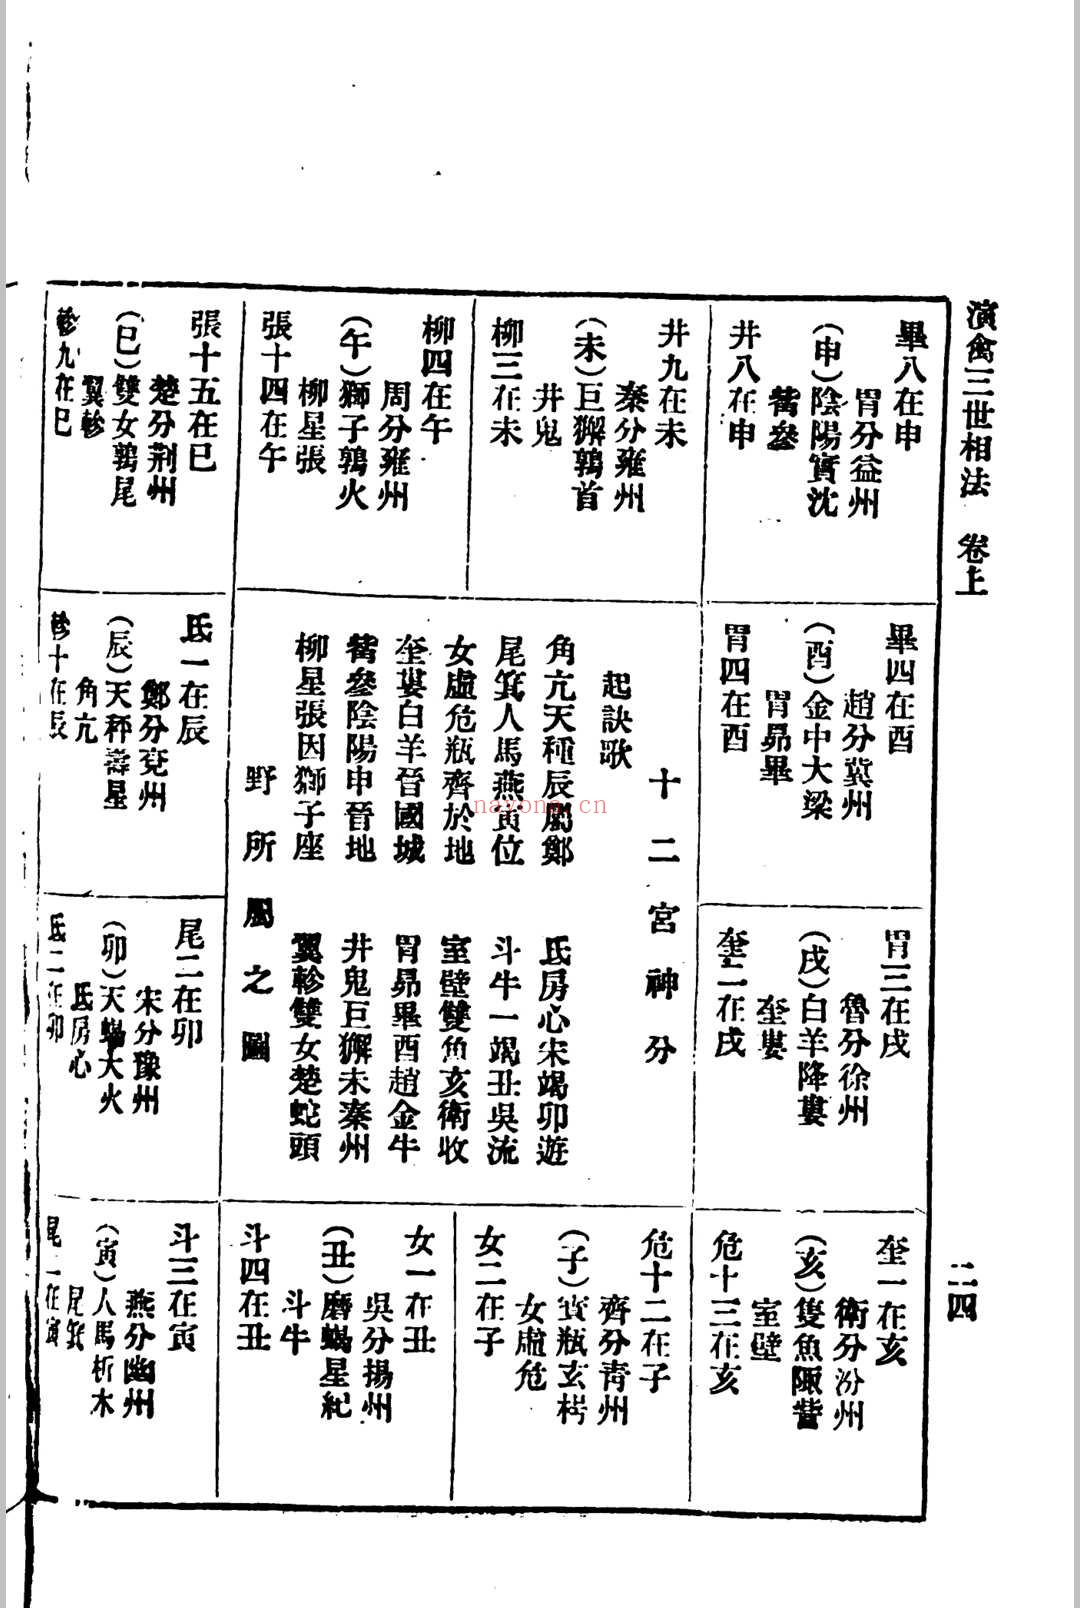 演禽三世相法　卷上
二四
畢八在申
胃分益州
（申）陰陽實沈
觜參
井八在申
井九在未
秦分雍州
（未）巨獬鶉首
井鬼
柳三在未
柳四在午
周分雍州
（午）獅子鶉火
柳星張
張十四在午
張十五在巳
楚分荆州
（巳）雙女鶉尾
翼軫
軫九在巳
畢四在酉
趙分冀州
（酉）金中大梁
胃昴畢
胃四在酉
十二宮神分
起訣歌
角亢天種辰屬鄭
氐房心宋竭卯遊
尾箕人馬燕寅位
斗牛一竭丑吳流
女虛危瓶齊於地
室壁雙魚亥衛收
奎婁白羊晉國城
胃昴畢酉趙金牛
觜參陰陽申晉地
井鬼巨獬未秦州
柳星張因獅子座
翼軫雙女楚蛇頭
野所屬之圖
氐一在辰
鄭分兗州
（辰）天秤壽星
角亢
軫十在辰
胃三在戌
魯分徐州
（戌）白羊降婁
奎婁
奎二在戌
尾二在卯
宋分豫州
（卯）天蝎大火
氐房心
氐二在卯
奎一在亥
衛分汾州
（亥）隻魚陬訾
室壁
危十三在亥
危十二在子
齊分青州
（子）寳瓶玄枵
女虛危
女二在子
女一在丑
吳分揚州
（丑）磨蝎星紀
斗牛
斗四在丑
斗三在寅
燕分幽州
（寅）人馬析木
尾箕
尾二在寅
nayona.cn